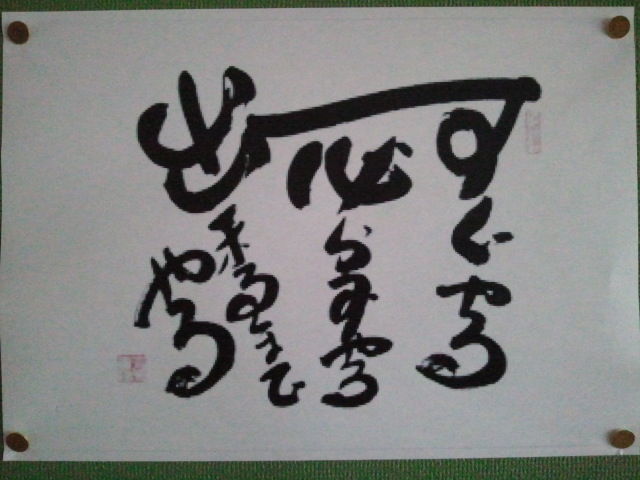 すぐやる
必らずやる
出来るまで
やる